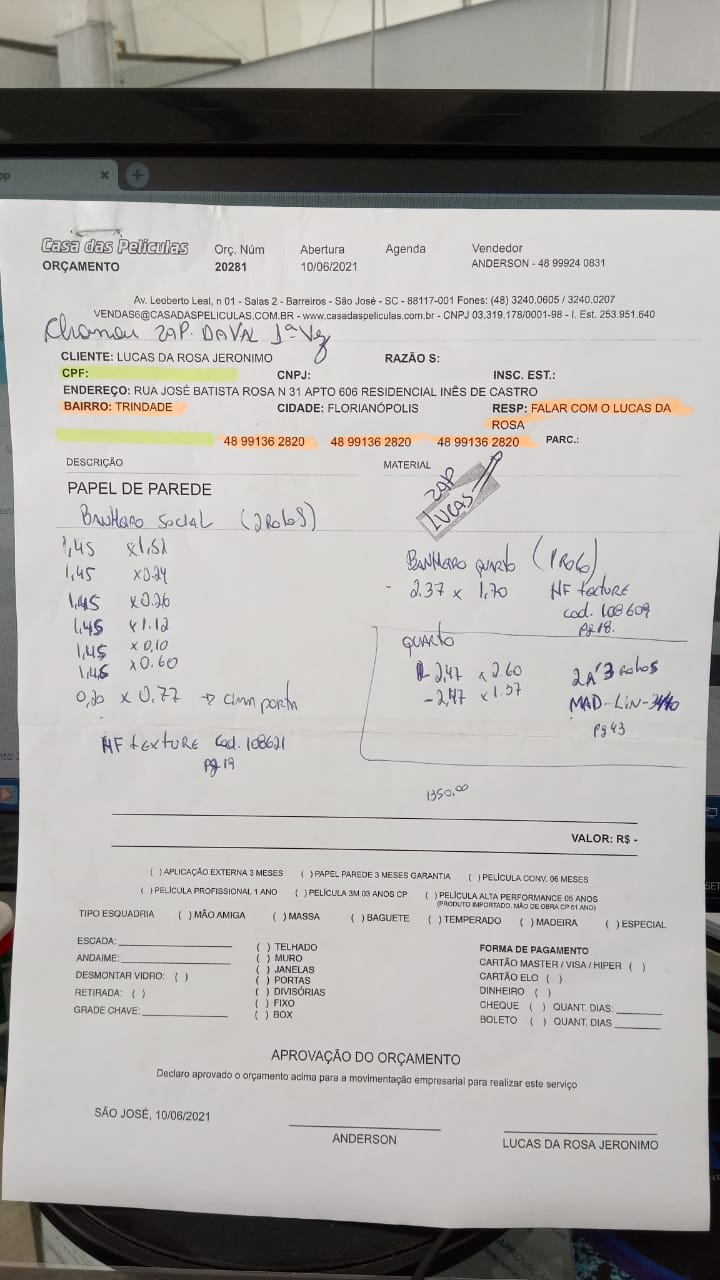 Casa das Películas
ORÇAMENTO
Orç. Núm
20281
Abertura
10/06/2021
Agenda
Vendedor
ANDERSON - 48 99924 0831
Av. Leoberto Leal, n 01 - Salas 2 - Barreiros - São José - SC - 88117-001 Fones: (48) 3240.0605 / 3240.0207
VENDAS6@CASADASPELICULAS.COM.BR - www.casadaspeliculas.com.br - CNPJ 03.319.178/0001-98 - I. Est. 253.951.640
Chamou ZAP. DAVAL 1ª Vez
CLIENTE: LUCAS DA ROSA JERONIMO RAZÃO S:
CPF: CNPJ: INSC. EST.:
ENDEREÇO: RUA JOSÉ BATISTA ROSA N 31 APTO 606 RESIDENCIAL INÊS DE CASTRO
BAIRRO: TRINDADE CIDADE: FLORIANÓPOLIS RESP: FALAR COM O LUCAS DA
ROSA
48 99136 2820 48 99136 2820 48 99136 2820 PARC.:
DESCRIÇÃO MATERIAL
ZAP
LUCAS
PAPEL DE PAREDE
BANHEIRO SOCIAL (2 ROLOS)
1,45 x1.52
1,45 x0.24
1,45 x0.26
1,45 x1.12
1,45 x0,10
1,45 x0.60
0,20 x 0.77 → cima porta
NF texture Cod. 108621
Pg 19
BANHEIRO quarto (1 Rolo)
- 2.37 x 1,70 NF texture
cod. 108609
Pg 18.
QUARTO
- 2,47 x 2.60 2 A 3 Rolos
- 2,47 x 1.37 MAD-LIN-3440
Pg 43
1350,00
VALOR: R$ -
( ) APLICAÇÃO EXTERNA 3 MESES ( ) PAPEL PAREDE 3 MESES GARANTIA ( ) PELÍCULA CONV. 06 MESES
( ) PELÍCULA PROFISSIONAL 1 ANO ( ) PELÍCULA 3M 03 ANOS CP ( ) PELÍCULA ALTA PERFORMANCE 05 ANOS
(PRODUTO IMPORTADO, MÃO DE OBRA CP 01 ANO)
TIPO ESQUADRIA ( ) MÃO AMIGA ( ) MASSA ( ) BAGUETE ( ) TEMPERADO ( ) MADEIRA ( ) ESPECIAL
ESCADA:
ANDAIME:
DESMONTAR VIDRO: ( )
RETIRADA: ( )
GRADE CHAVE:
( ) TELHADO
( ) MURO
( ) JANELAS
( ) PORTAS
( ) DIVISÓRIAS
( ) FIXO
( ) BOX
FORMA DE PAGAMENTO
CARTÃO MASTER / VISA / HIPER ( )
CARTÃO ELO ( )
DINHEIRO ( )
CHEQUE ( ) QUANT. DIAS:
BOLETO ( ) QUANT. DIAS
APROVAÇÃO DO ORÇAMENTO
Declaro aprovado o orçamento acima para a movimentação empresarial para realizar este serviço
SÃO JOSÉ, 10/06/2021
ANDERSON
LUCAS DA ROSA JERONIMO